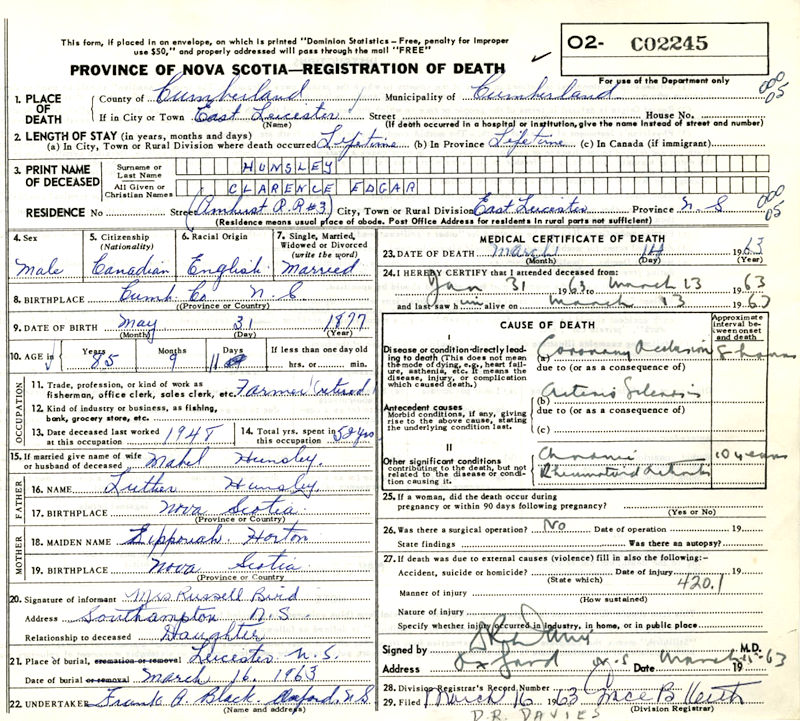 This form, if placed in an envelope, on which is printed "Dominion Statistics – Free, penalty for improper
use $50," and properly addressed will pass through the mail "FREE"
O2- C02245
For use of the Department only
PROVINCE OF NOVA SCOTIA—REGISTRATION OF DEATH
000
05
1. PLACE OF DEATH
County of Cumberland Municipality of Cumberland
If in City or Town East Leicester Street House No.
(Name) (If death occurred in a hospital or institution, give the name instead of street and number)
2. LENGTH OF STAY (in years, months and days)
(a) In City, Town or Rural Division where death occurred Lifetime (b) In Province Lifetime (c) In Canada (if immigrant)
3. PRINT NAME OF DECEASED
Surname or Last Name HUNSLEY
All Given or Christian Names CLARENCE EDGAR
000
05
RESIDENCE No Street (Amherst R.R #3) City, Town or Rural Division East Leicester Province N. S
(Residence means usual place of abode. Post Office Address for residents in rural parts not sufficient)
4. Sex
Male
5. Citizenship (Nationality)
Canadian
6. Racial Origin
English
7. Single, Married, Widowed or Divorced (write the word)
Married
8. BIRTHPLACE Cumb. Co. N. S
(Province or Country)
9. DATE OF BIRTH May 31 1877
(Month) (Day) (Year)
10. AGE in Years 85 Months 9 Days 11 If less than one day old
hrs. or min.
OCCUPATION
11. Trade, profession, or kind of work as
fisherman, office clerk, sales clerk, etc. Farmer (retired)
12. Kind of industry or business, as fishing,
bank, grocery store, etc.
13. Date deceased last worked at this occupation
14. Total yrs. spent in this occupation 52 yrs
15. If married give name of wife
or husband of deceased Mabel Hunsley
FATHER
16. NAME Luther Hunsley
17. BIRTHPLACE Nova Scotia
(Province or Country)
MOTHER
18. MAIDEN NAME Zipporiah Horton
19. BIRTHPLACE Nova Scotia
(Province or Country
20. Signature of informant Mrs Russell Bird
Address Southampton N.S.
Relationship to deceased Daughter
21. Place of burial, cremation or removal Leicester N.S.
Date of burial or removal March 16, 1963
22. UNDERTAKER Frank A. Black Oxford, N.S
(Name and address)
MEDICAL CERTIFICATE OF DEATH
23. DATE OF DEATH March 14 1963
(Month) (Day) (Year)
24. I HEREBY CERTIFY that I attended deceased from:
Jan 31 1963 to March 13 1963
and last saw him alive on March 13 1963
CAUSE OF DEATH
Approximate interval between onset and death
I
Disease or condition directly leading to death (This does not mean the mode of dying, e.g., heart failure, asthenia, etc. It means the disease, injury, or complication which caused death.)
(a) Coronary Occlusion 8 hours
due to (or as a consequence of)
Antecedent causes
Morbid conditions, if any, giving rise to the above cause, stating the underlying condition last.
(b) Arterio Sclerosis
due to (or as a consequence of)
(c)
II
Other significant conditions
contributing to the death, but not related to the disease or condition causing it.
Chronic 10 years
Rheumatoid Arthritis
25. If a woman, did the death occur during
pregnancy or within 90 days following pregnancy?
(Yes or No)
26. Was there a surgical operation? No Date of operation 19
State findings Was there an autopsy?
27. If death was due to external causes (violence) fill in also the following:–
Accident, suicide or homicide? Date of injury 19
(State which)
420.1
Manner of injury
(How sustained)
Nature of injury
Specify whether injury occurred in industry, in home, or in public place
Signed by M.D.
Address Oxford N.S Date March 19 63
28. Division Registrar's Record Number
29. Filed March 16 1963
(Division Registrar)
D.R. DAVIES